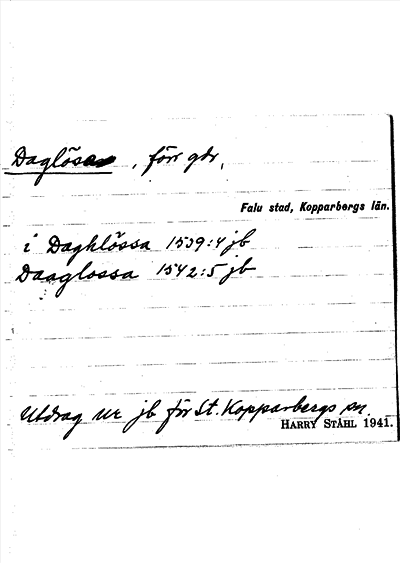 Daglösa, förr gdr,
Falu stad, Kopparbergs län.
i Daghlössa 1539:4 jb
Daaglossa 1542:5 jb
Utdrag ur jb för St. Kopparbergs sn.
HARRY STÅHL 1941.